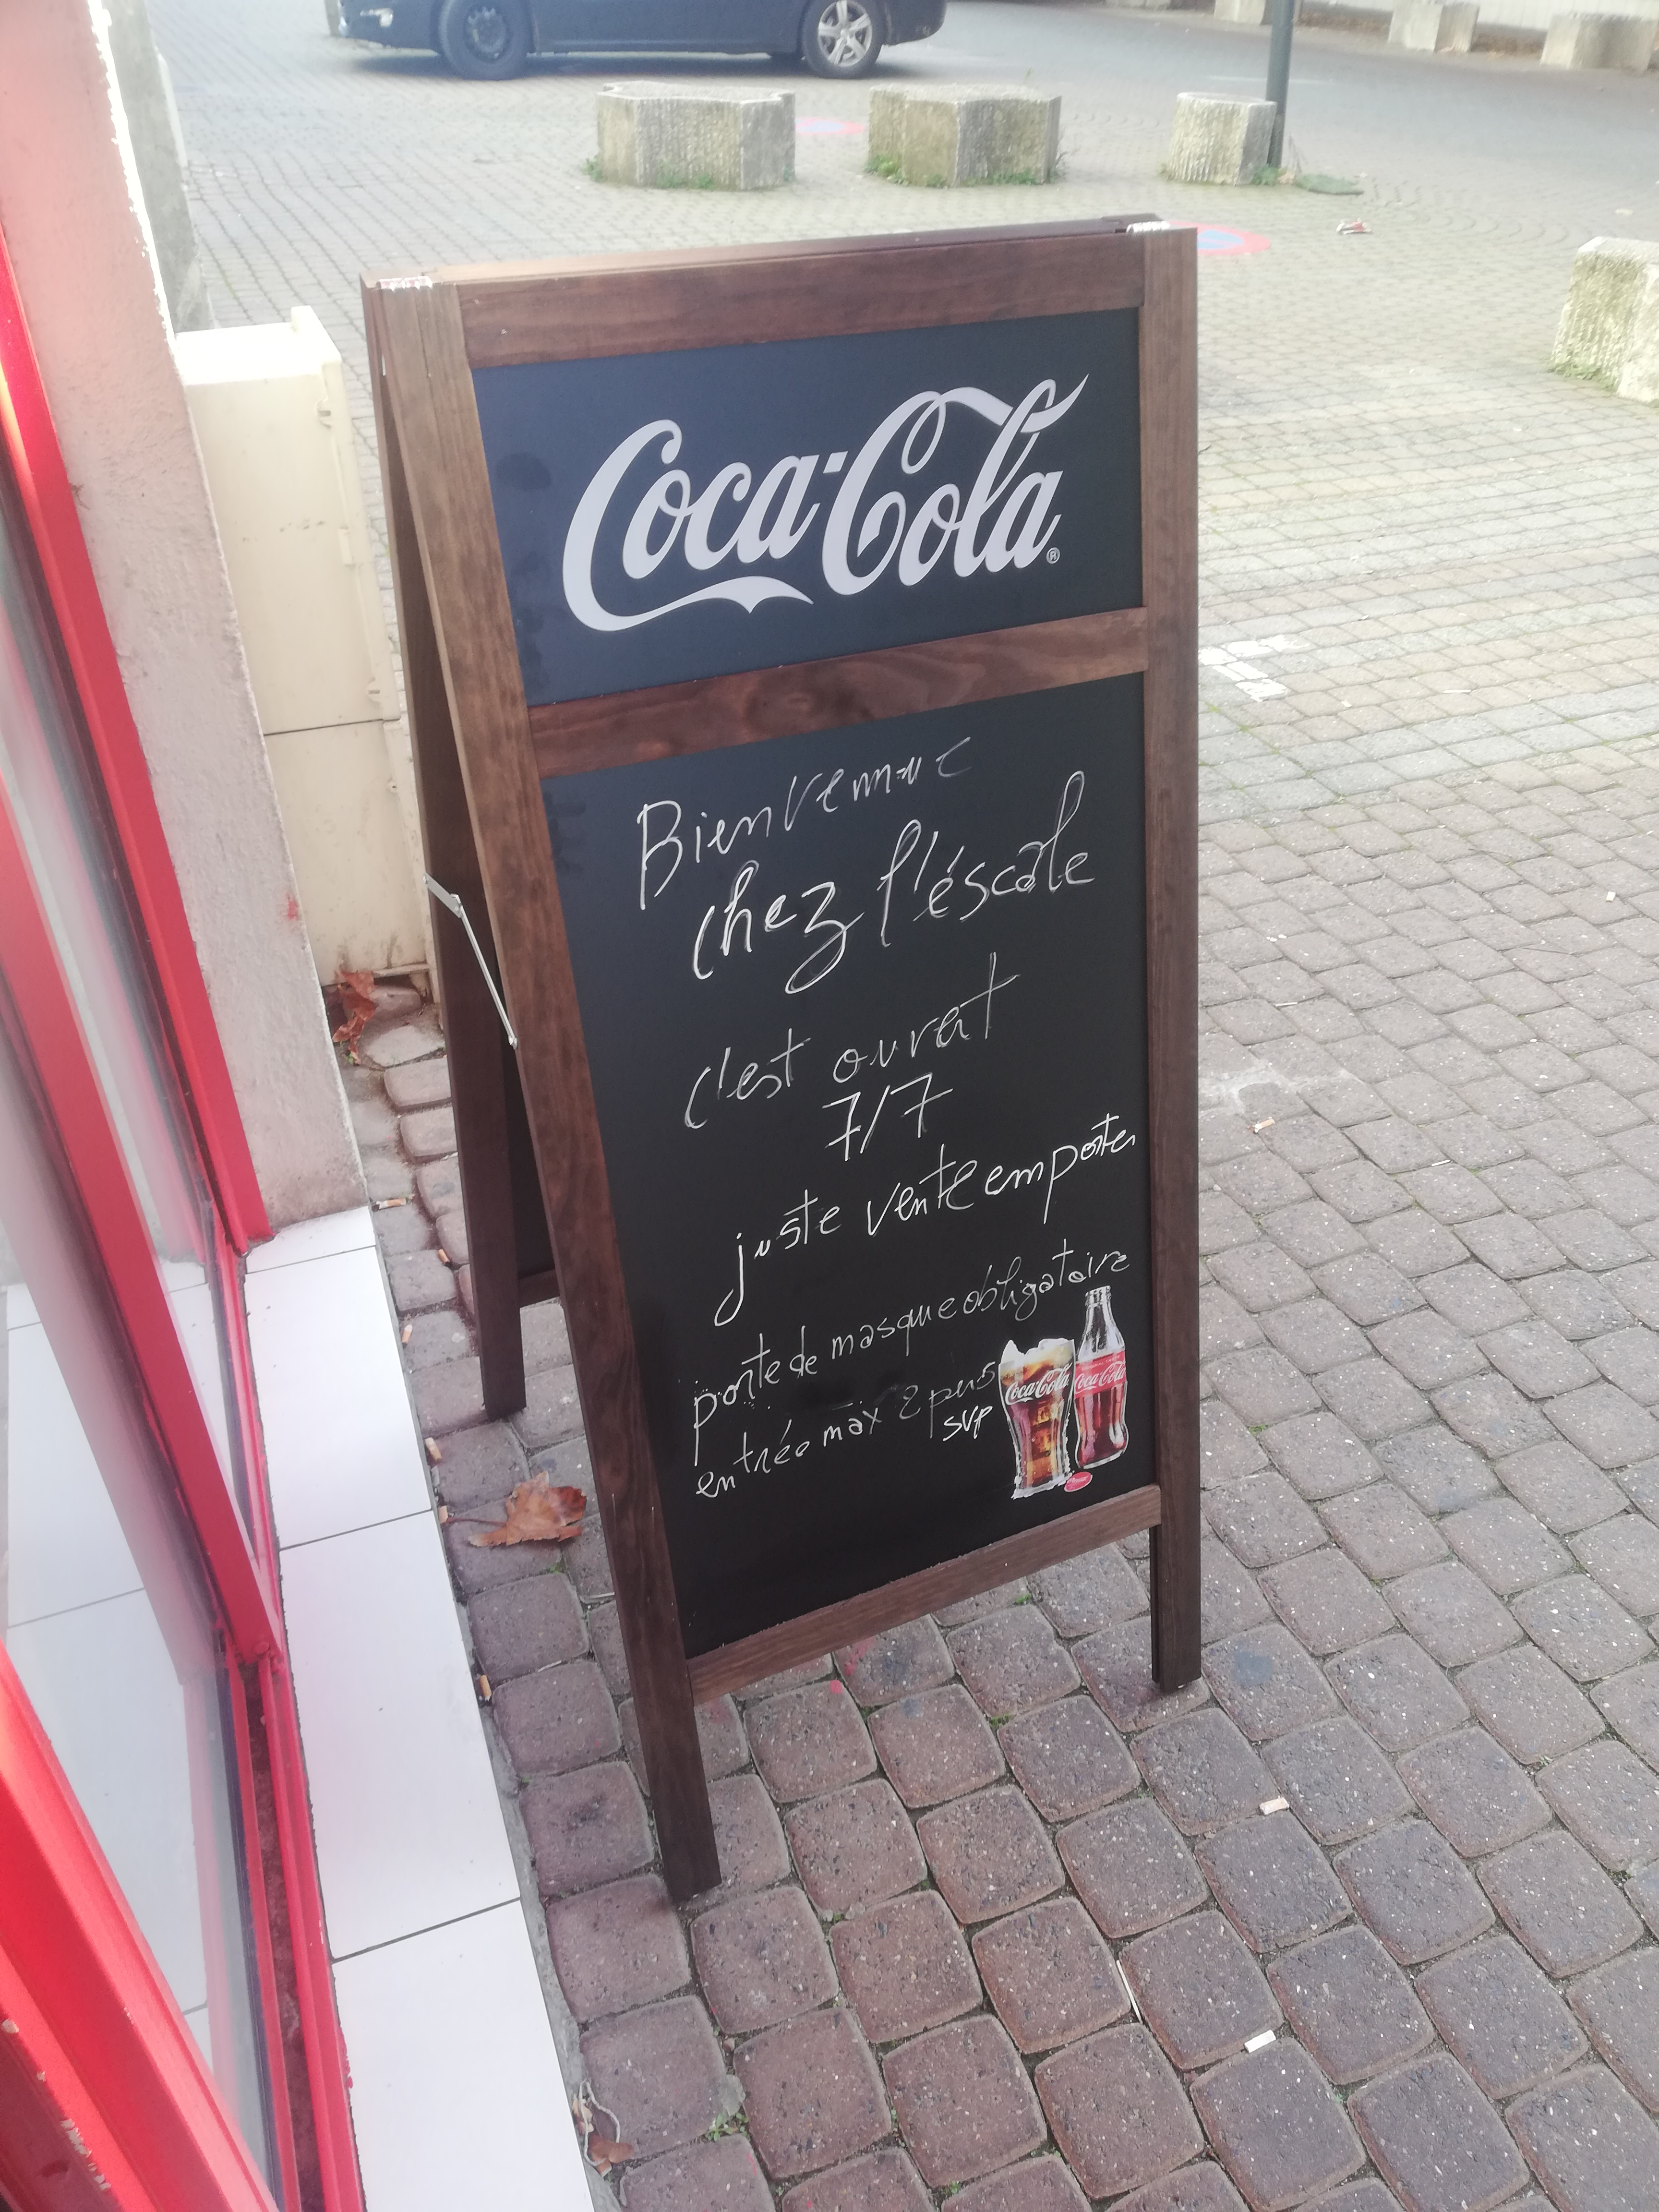 Coca-Cola®
Bienvennue
chez l'éscale
c'est ouvert
7/7
juste vente emporter
porte de masque obligatoire
entrée max 2 pers
svp
Coca-Cola Coca-Cola